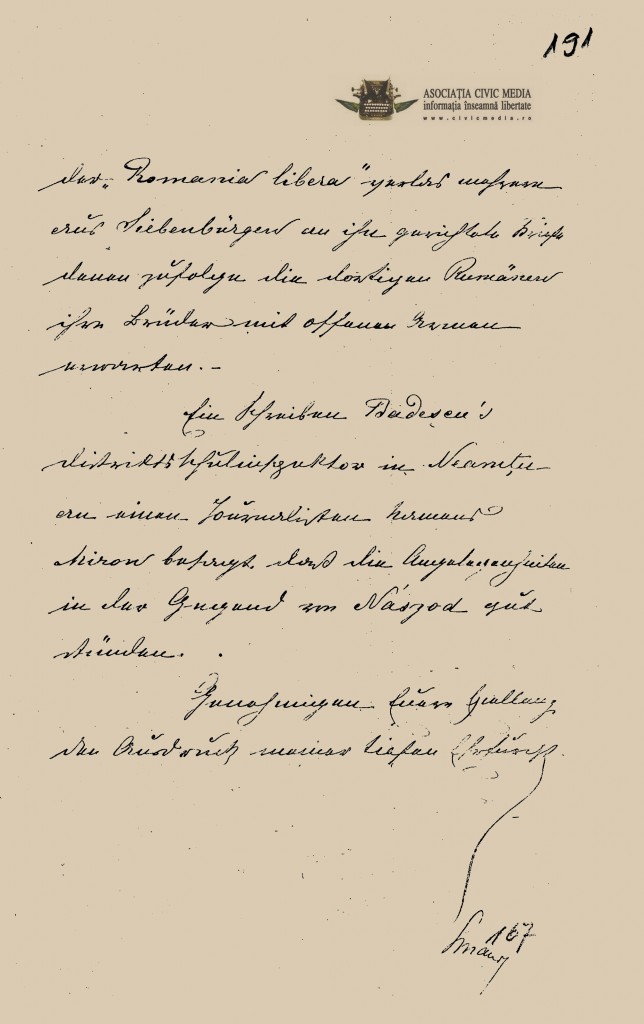 191
ASOCIAȚIA CIVIC MEDIA
informația înseamnă libertate
www.civicmedia.ro
der „Romania libera" verlas mehrere
aus Siebenbürgen an ihn gerichtete Briefe
denen zufolge die dortigen Rumänen
ihre Brüder mit offenen Armen
erwarten.-
Ein Schreiben Badescu's
Distriktsschulinspektor in Neamțu
an einen Journalisten Namens
Miron besagt, daß die Angelegenheiten
in der Gegend von Nászod gut
stünden.
Genehmigen Euere Exellenz
den Ausdruck meiner tiefen Ehrfurcht.
167